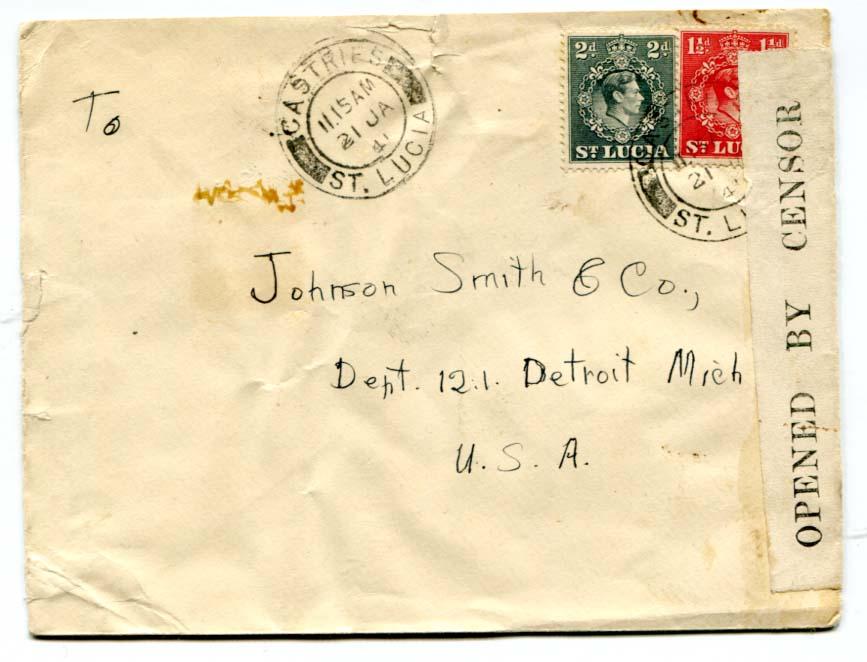 To
CASTRIES
11.15AM
21 JA
41
ST. LUCIA
2d 2d
ST LUCIA
1½d 1½d
ST LU
21
ST. LU
Johnson Smith & Co.,
Dept. 121. Detroit Mich
U. S. A.
OPENED BY CENSOR